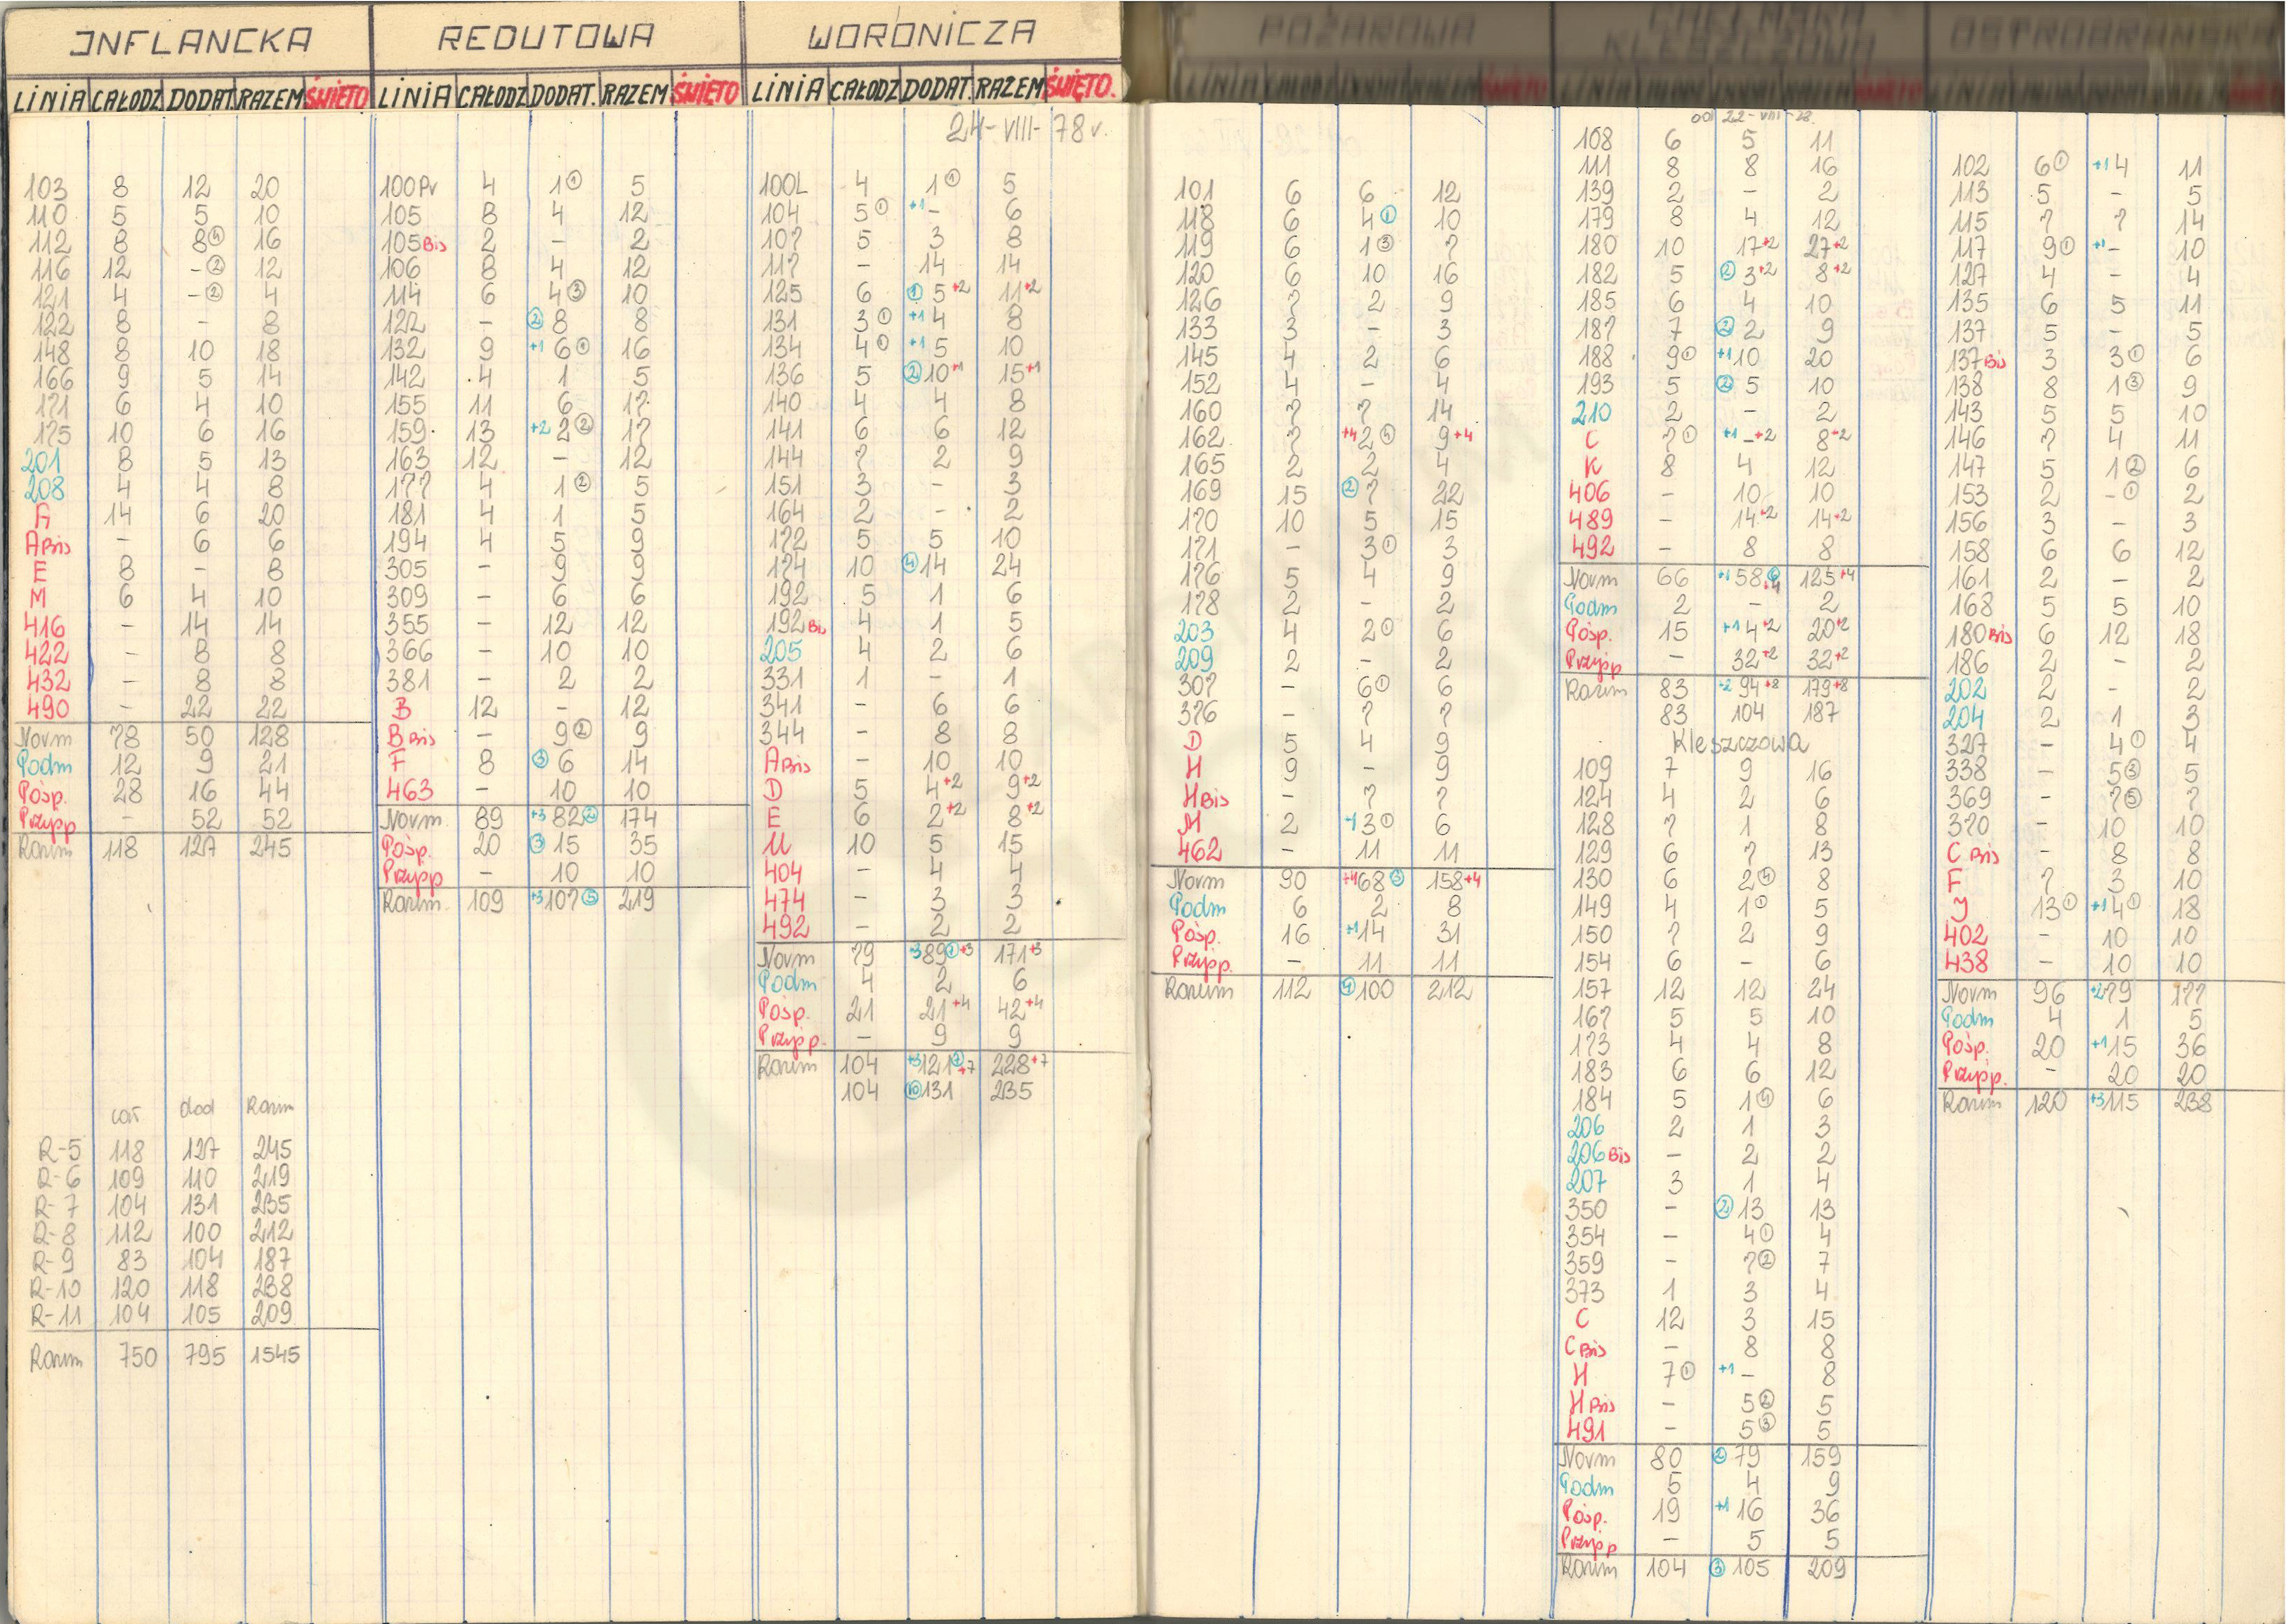 INFLANCKA
LINIA CAŁODZ DODAT RAZEM ŚWIĘTO
103 8 12 20
110 5 5 10
112 8 8④ 16
116 12 -② 12
121 4 -② 4
122 8 - 8
148 8 10 18
166 9 5 14
171 6 4 10
175 10 6 16
201 8 5 13
208 4 4 8
A 14 6 20
A Bis - 6 6
E 8 - 8
M 6 4 10
416 - 14 14
422 - 8 8
432 - 8 8
490 - 22 22
Norm 78 50 128
Podm 12 9 21
Pośp. 28 16 44
Przysp - 52 52
Razem 118 127 245
cał dod Razem
R-5 118 127 245
R-6 109 110 219
R-7 104 131 235
R-8 112 100 212
R-9 83 104 187
R-10 120 118 238
R-11 104 105 209
Razem 750 795 1545
REDUTOWA
LINIA CAŁODZ DODAT. RAZEM ŚWIĘTO
100Pr 4 1① 5
105 8 4 12
105 Bis 2 - 2
106 8 4 12
114 6 4③ 10
122 - ②8 8
132 9 +1 6① 16
142 4 1 5
155 11 6 17
159 13 +2 2② 17
163 12 - 12
177 4 1② 5
181 4 1 5
194 4 5 9
305 - 9 9
309 - 6 6
355 - 12 12
366 - 10 10
381 - 2 2
B 12 - 12
B Bis - 9② 9
F 8 ③6 14
463 - 10 10
Norm. 89 +3 82② 174
Pośp. 20 ③15 35
Przysp - 10 10
Razem. 109 +3 107⑤ 219
WORONICZA
LINIA CAŁODZ DODAT. RAZEM ŚWIĘTO.
24-VIII-78 r.
100L 4 1① 5
104 5① +1 - 6
107 5 3 8
117 - 14 14
125 6 ①5+2 11+2
131 3① +1 4 8
134 4① +1 5 10
136 5 ②10+1 15+1
140 4 4 8
141 6 6 12
144 7 2 9
151 3 - 3
164 2 - 2
172 5 5 10
174 10 ④14 24
192 5 1 6
192 Bis 4 1 5
205 4 2 6
331 1 - 1
341 - 6 6
344 - 8 8
A Bis - 10 10
D 5 4+2 9+2
E 6 2+2 8+2
U 10 5 15
404 - 4 4
474 - 3 3
492 - 2 2
Norm 79 +3 89⑦+3 171+3
Podm 4 2 6
Pośp. 21 21+4 42+4
Przysp. - 9 9
Razem 104 +3 121⑦+7 228+7
104 ⑩131 235
POŻAROWA
101 6 6 12
118 6 4① 10
119 6 1③ 7
120 6 10 16
126 7 2 9
133 3 - 3
145 4 2 6
152 4 - 4
160 7 7 14
162 7 +4 2④ 9+4
165 2 2 4
169 15 ②7 22
170 10 5 15
171 - 3① 3
176 5 4 9
178 2 - 2
203 4 2① 6
209 2 - 2
307 - 6① 6
376 - 7 7
D 5 4 9
H 9 - 9
H Bis - 7 7
M 2 +1 3① 6
462 - 11 11
Norm 90 +4 68③ 158+4
Podm 6 2 8
Pośp. 16 +1 14 31
Przysp. - 11 11
Razem 112 ④100 212
KLESZCZOWA
od 22-VIII-78.
108 6 5 11
111 8 8 16
139 2 - 2
179 8 4 12
180 10 17+2 27+2
182 5 ②3+2 8+2
185 6 4 10
187 7 ②2 9
188 9① +1 10 20
193 5 ②5 10
210 2 - 2
C 7① +1 -+2 8+2
K 8 4 12
406 - 10 10
489 - 14+2 14+2
492 - 8 8
Norm 66 +1 58⑥+4 125+4
Podm 2 - 2
Pośp. 15 +1 4+2 20+2
Przysp - 32+2 32+2
Razem 83 +2 94+8 179+8
83 104 187
Kleszczowa
109 7 9 16
124 4 2 6
128 7 1 8
129 6 7 13
130 6 2④ 8
149 4 1① 5
150 7 2 9
154 6 - 6
157 12 12 24
167 5 5 10
173 4 4 8
183 6 6 12
184 5 1④ 6
206 2 1 3
206 Bis - 2 2
207 3 1 4
350 - ②13 13
354 - 4① 4
359 - 7② 7
373 1 3 4
C 12 3 15
C Bis - 8 8
H 7① +1 - 8
H Bis - 5② 5
491 - 5③ 5
Norm 80 ②79 159
Podm 5 4 9
Pośp. 19 +1 16 36
Przysp - 5 5
Razem 104 ③105 209
OSTROBRAMSKA
102 6① +1 4 11
113 5 - 5
115 7 7 14
117 9① +1 - 10
127 4 - 4
135 6 5 11
137 5 - 5
137 Bis 3 3① 6
138 8 1③ 9
143 5 5 10
146 7 4 11
147 5 1② 6
153 2 -① 2
156 3 - 3
158 6 6 12
161 2 - 2
168 5 5 10
180 Bis 6 12 18
186 2 - 2
202 2 - 2
204 2 1 3
327 - 4① 4
338 - 5③ 5
369 - 7⑤ 7
370 - 10 10
C Bis - 8 8
F 7 3 10
J 13① +1 4① 18
402 - 10 10
438 - 10 10
Norm 96 +2 79 177
Podm 4 1 5
Pośp. 20 +1 15 36
Przysp. - 20 20
Razem 120 +3 115 238